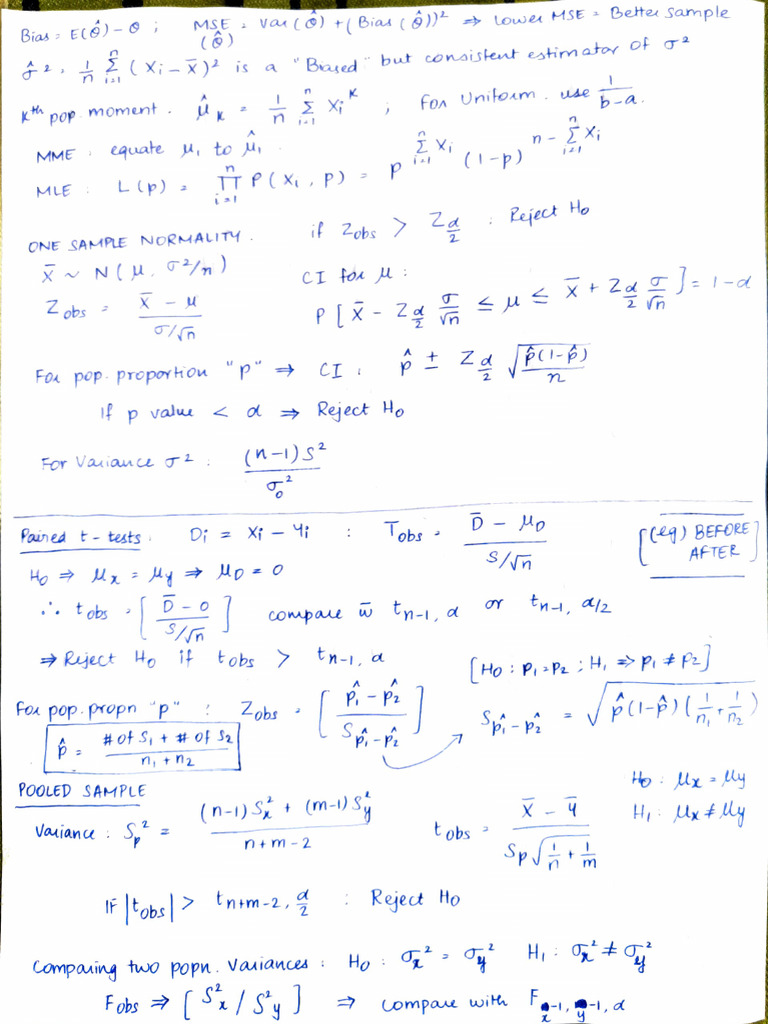 Bias = E(θ̂) - θ ; MSE(θ̂) = Var(θ̂) + (Bias(θ̂))² ⇒ Lower MSE = Better sample
σ̂² = 1/n Σᵢ₌₁ⁿ (Xi - X̄)² is a "Biased" but consistent estimator of σ²
Kth pop. moment. μ̂_K = 1/n Σᵢ₌₁ⁿ Xi^K ; For Uniform. use 1/(b-a).
MME : equate μ₁ to μ̂₁.
MLE : L(p) = Πᵢ₌₁ⁿ P(Xi, p) = p^(Σᵢ₌₁ⁿ Xi) (1-p)^(n - Σᵢ₌₁ⁿ Xi)
ONE SAMPLE NORMALITY. if Z obs > Z α/2 : Reject H₀
X̄ ~ N(μ, σ²/n) CI for μ :
Z obs = (X̄ - μ)/(σ/√n) P[X̄ - Z α/2 σ/√n ≤ μ ≤ X̄ + Z α/2 σ/√n] = 1-α
For pop. proportion "p" ⇒ CI : p̂ ± Z α/2 √(p̂(1-p̂)/n)
If p value < α ⇒ Reject H₀
For Variance σ² : (n-1)S²/σ₀²
Paired t-tests. Di = Xi - Yi : T obs = (D̄ - μ_D)/(S/√n) [(eg) BEFORE AFTER]
H₀ ⇒ μx = μy ⇒ μ_D = 0
∴ t obs = [(D̄ - 0)/(S/√n)] compare w̄ t n-1, α or t n-1, α/2
⇒ Reject H₀ if t obs > t n-1, α [H₀ : p₁ = p₂ ; H₁ ⇒ p₁ ≠ p₂]
For pop. propn "p" : Z obs = [(p̂₁ - p̂₂)/S p̂₁-p̂₂] S p̂₁-p̂₂ = √(p̂(1-p̂)(1/n₁ + 1/n₂))
p̂ = (# of S₁ + # of S₂)/(n₁ + n₂)
POOLED SAMPLE H₀ : μx = μy
Variance : Sp² = ((n-1)Sx² + (m-1)Sy²)/(n+m-2) t obs = (X̄ - Ȳ)/(Sp√(1/n + 1/m)) H₁ : μx ≠ μy
IF |t obs| > t n+m-2, α/2 : Reject H₀
Comparing two popn. Variances : H₀ : σx² = σy² H₁ : σx² ≠ σy²
F obs ⇒ [S²x / S²y] ⇒ compare with F x-1, y-1, α